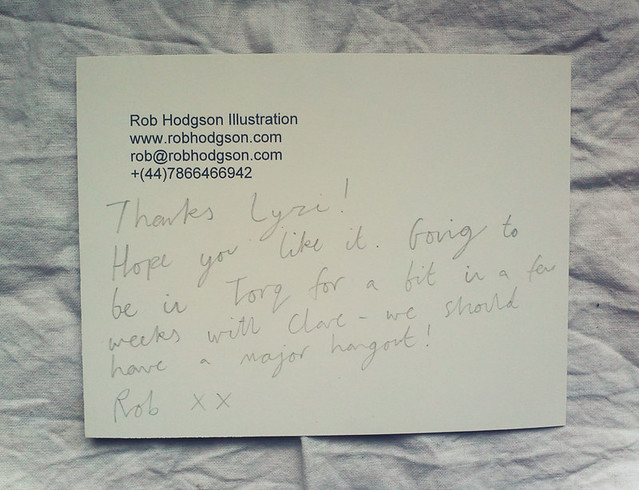 Rob Hodgson Illustration
www.robhodgson.com
rob@robhodgson.com
+(44)7866466942
Thanks Lyzi!
Hope you like it. Going to
be in Torq for a bit in a few
weeks with Clare - we should
have a major hangout!
Rob XX